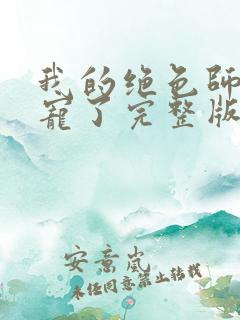 我的绝色师
宠了完整版
安意岚
未经同意禁止转载